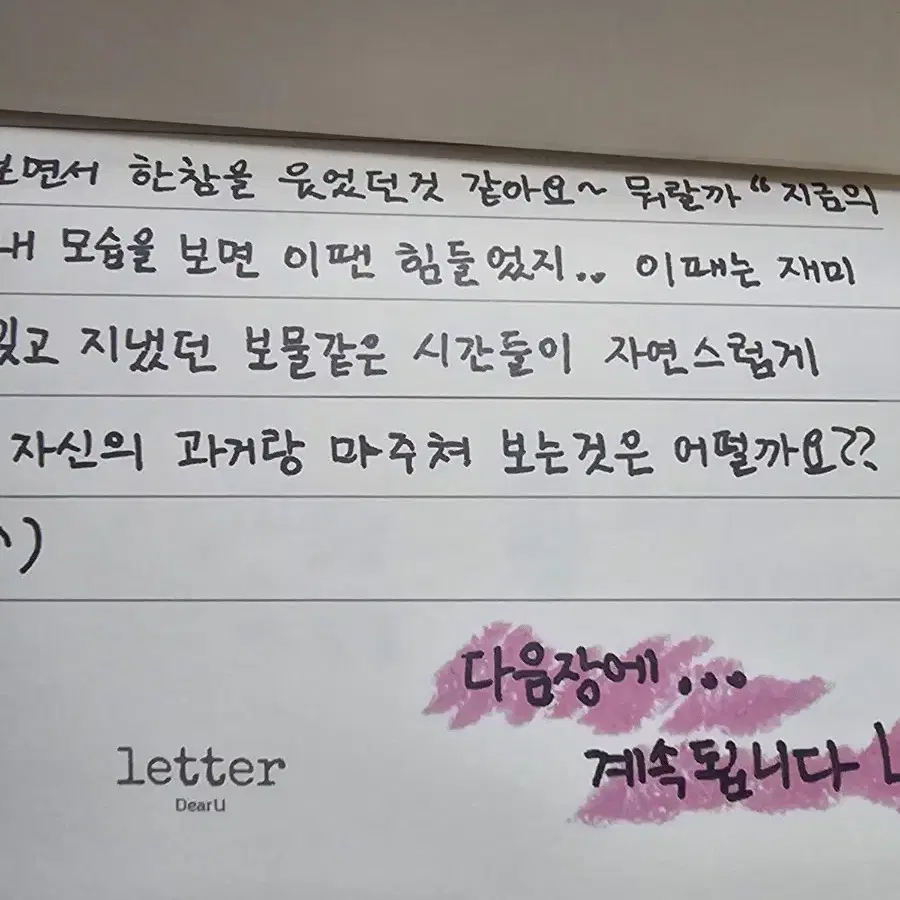 보면서 한참을 웃었던것 같아요~ 뭐랄까 “지금의
내 모습을 보면 이땐 힘들었지.. 이때는 재미
있고 지냈던 보물같은 시간들이 자연스럽게
자신의 과거랑 마주쳐 보는것은 어떨까요??
^)
다음장에...
계속됩니다
letter
DearU